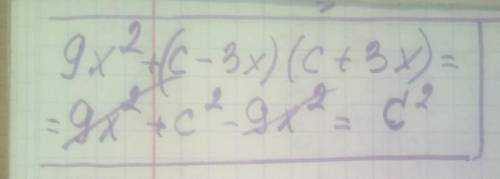 9x² + (c - 3x)(c + 3x) =
= 9x² + c² - 9x² = c²